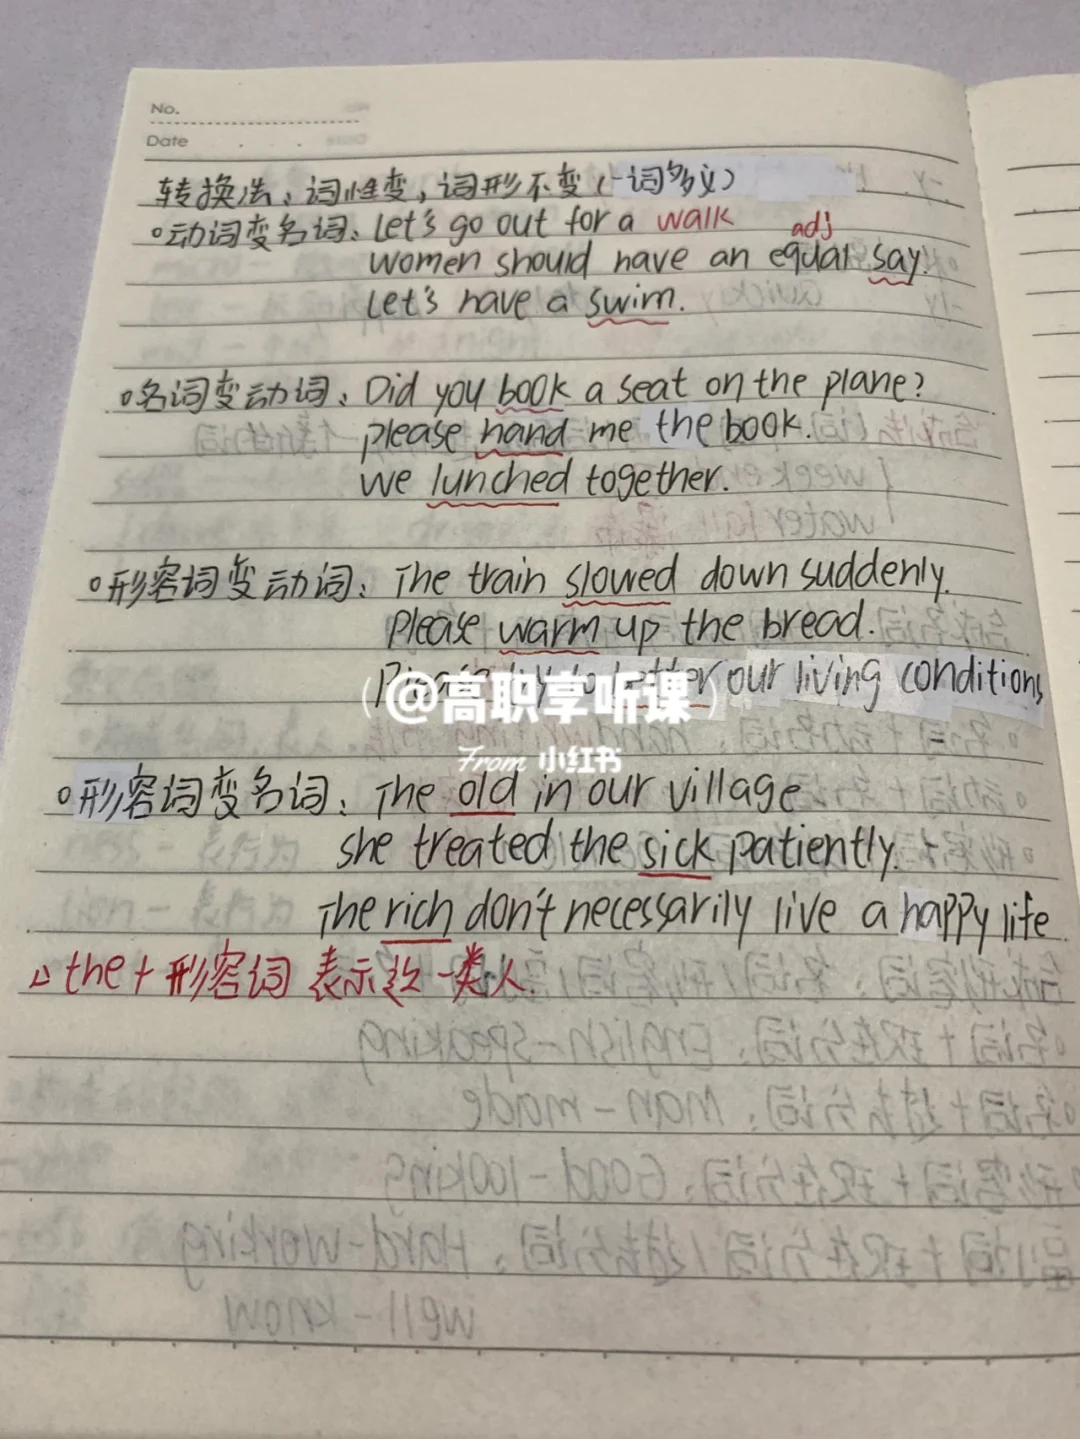 No.
Date
转换法：词性变，词形不变（一词多义）
动词变名词：Let's go out for a walk
adj
women should have an equal say.
Let's have a swim.
名词变动词：Did you book a seat on the plane?
please hand me the book.
we lunched together.
形容词变动词：The train slowed down suddenly.
Please warm up the bread.
Please try to better our living conditions
@高职享听课
From 小红书
形容词变名词：The old in our village
she treated the sick patiently.
The rich don't necessarily live a happy life
the + 形容词 表示 一类人.